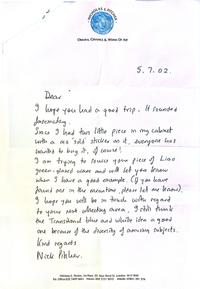 NICHOLAS S. PITCHER
ORIENTAL CERAMICS & WORKS OF ART
5.7.02.
Dear
I hope you had a good trip. It sounded
fascinating.
Since I had this little piece in my cabinet
with a red 'sold' sticker on it, everyone has
wanted to buy it, of course!
I am trying to source your piece of Liao
green-glazed ware and will let you know
when I have a good example. (If you have
found one in the meantime please let me know).
I hope you will be in touch with regard
to your next collecting area, I still think
the Transitional blue and white idea a good
one because of the diversity of amusing subjects.
Kind regards
Nick Pitcher.